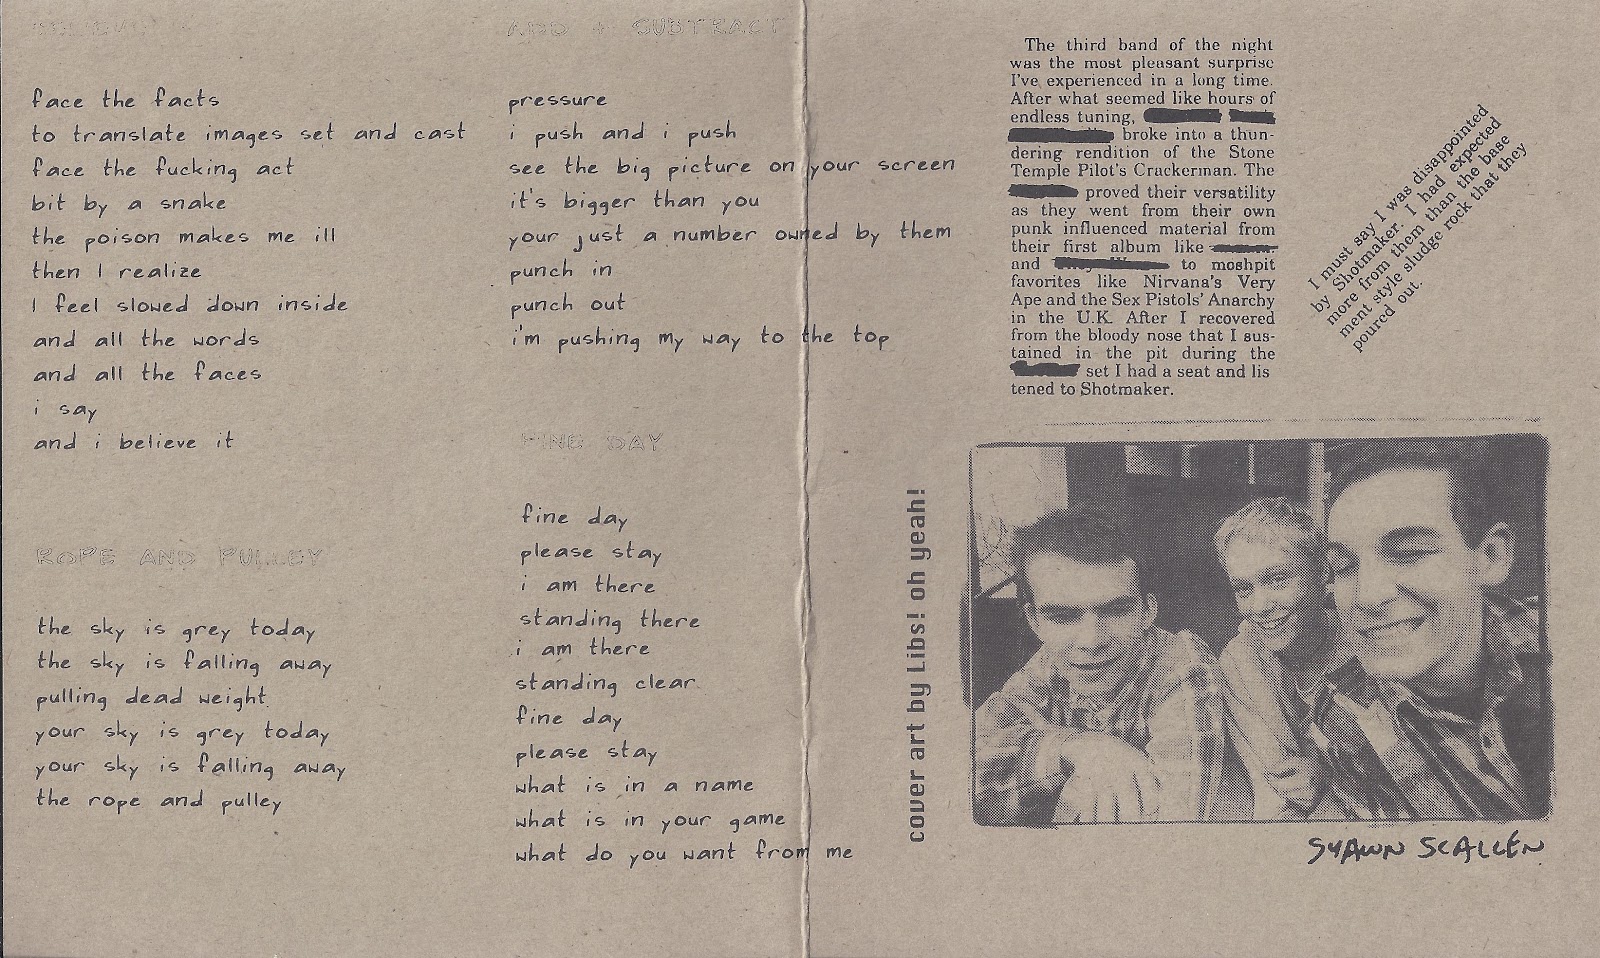 face the facts
to translate images set and cast
face the fucking act
bit by a snake
the poison makes me ill
then I realize
I feel slowed down inside
and all the words
and all the faces
i say
and i believe it
ROPE AND PULLEY
the sky is grey today
the sky is falling away
pulling dead weight
your sky is grey today
your sky is falling away
the rope and pulley
ADD + SUBTRACT
pressure
i push and i push
see the big picture on your screen
it's bigger than you
your just a number owned by them
punch in
punch out
i'm pushing my way to the top
FINE DAY
fine day
please stay
i am there
standing there
i am there
standing clear
fine day
please stay
what is in a name
what is in your game
what do you want from me
The third band of the night
was the most pleasant surprise
I've experienced in a long time.
After what seemed like hours of
endless tuning,
broke into a thun-
dering rendition of the Stone
Temple Pilot's Crackerman. The
proved their versatility
as they went from their own
punk influenced material from
their first album like
and to moshpit
favorites like Nirvana's Very
Ape and the Sex Pistols' Anarchy
in the U.K. After I recovered
from the bloody nose that I sus-
tained in the pit during the
set I had a seat and lis
tened to Shotmaker.
I must say I was disappointed
by Shotmaker. I had expected
more from them than the base
ment style sludge rock that they
poured out.
cover art by Libs! oh yeah!
SHAWN SCALLEN